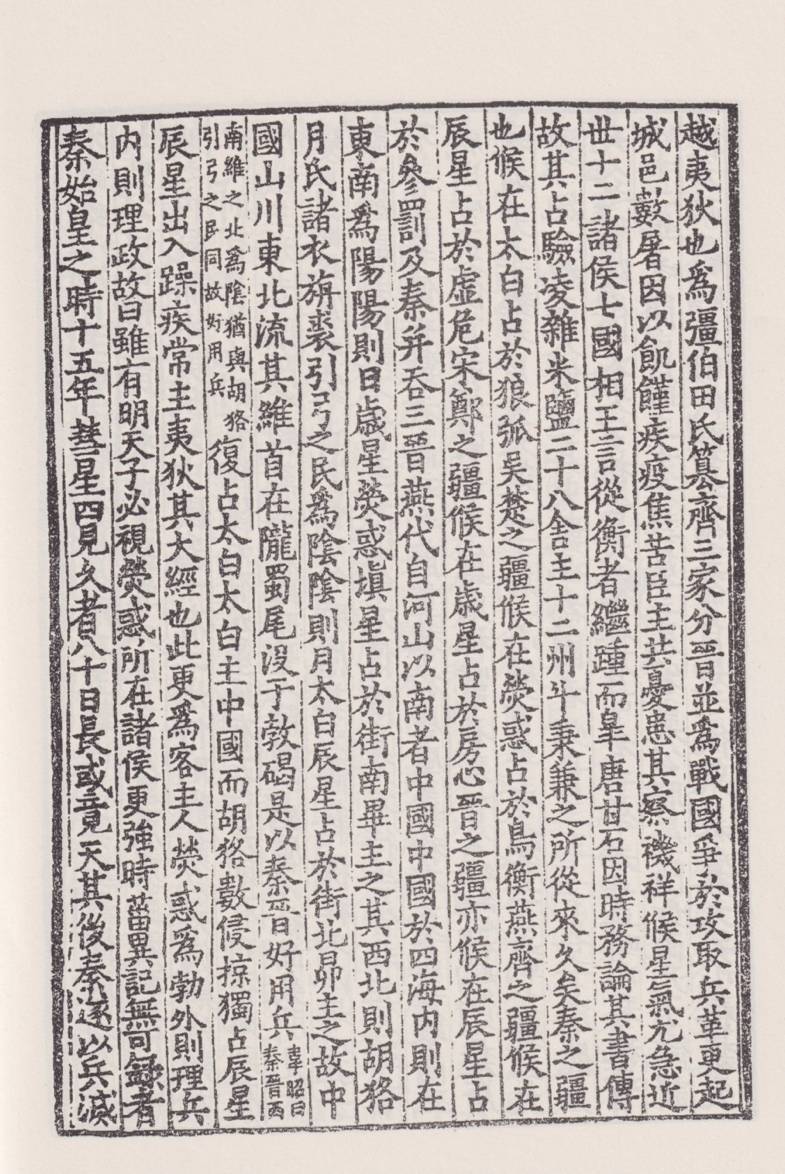 越夷狄也爲彊伯田氏篡齊三家分晉並爲戰國爭於攻取兵革更起
城邑數屠因以飢饉疾疫焦苦臣主共憂患其察禨祥候星氣尤急近
世十二諸侯七國相王言從衡者繼踵而臯唐甘石因時務論其書傳
故其占驗凌雜米鹽二十八舍主十二州斗秉兼之所從來久矣秦之疆
也候在太白占於狼弧吳楚之疆候在熒惑占於鳥衡燕齊之疆候在
辰星占於虛危宋鄭之疆候在歲星占於房心晉之疆亦候在辰星占
於參罰及秦并吞三晉燕代自河山以南者中國中國於四海内則在
東南爲陽陽則日歲星熒惑塡星占於街南畢主之其西北則胡狢
月氏諸衣旃裘引弓之民爲陰陰則月太白辰星占於街北昴主之故中
國山川東北流其維首在隴蜀尾没于敦碣是以秦晉好用兵韋昭曰秦晉西
南維之北爲陰猶與胡狢引弓之民同故好用兵復占太白太白主中國而胡狢數侵掠獨占辰星
辰星出入躁疾常主夷狄其大經也此更爲客主人熒惑爲勃外則理兵
内則理政故曰雖有明天子必視熒惑所在諸侯更強時菑異記無可錄者
秦始皇之時十五年彗星四見久者八十日長或竟天其後秦遂以兵滅